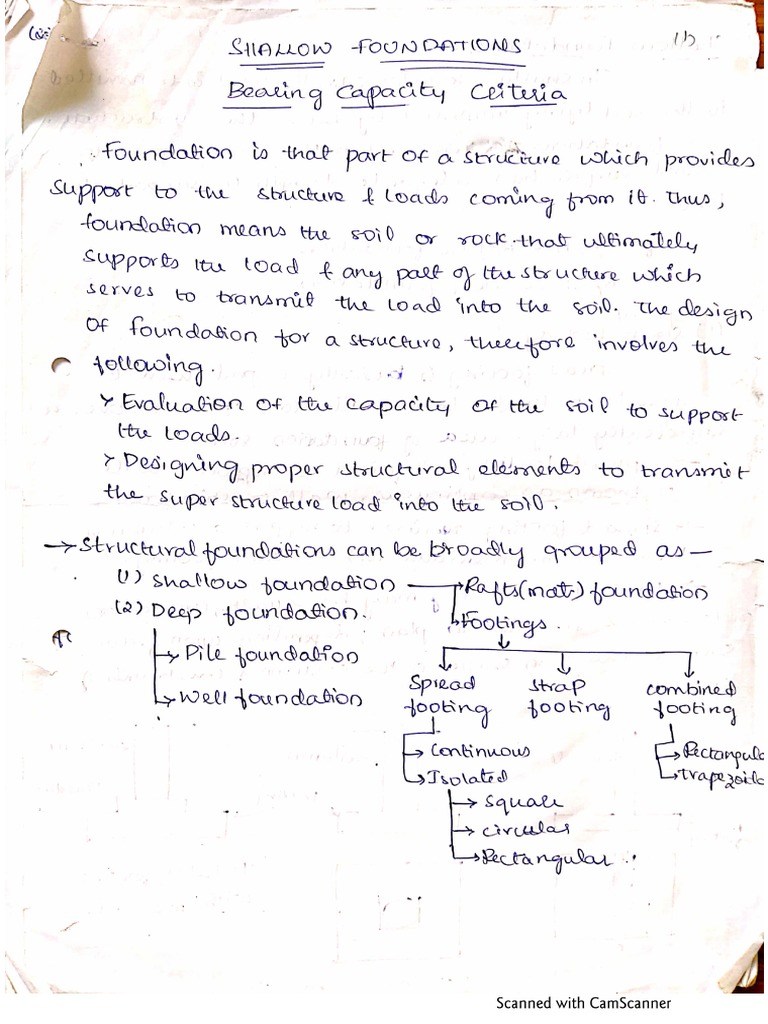 SHALLOW FOUNDATIONS
Bearing Capacity Criteria
Foundation is that part of a structure which provides
support to the structure & loads coming from it. Thus,
foundation means the soil or rock that ultimately
supports the load & any part of the structure which
serves to transmit the load into the soil. The design
of foundation for a structure, therefore involves the
following.
> Evaluation of the capacity of the soil to support
the loads.
> Designing proper structural elements to transmit
the super structure load into the soil.
→ Structural foundations can be broadly grouped as —
(1) Shallow foundation → Rafts (mats) foundation
(2) Deep foundation. → Footings.
→ Pile foundation
→ Well foundation
Spread footing
Strap footing
combined footing
→ Continuous
→ Isolated
→ Rectangula
→ trapezoida
→ square
→ circular
→ Rectangular.
Scanned with CamScanner